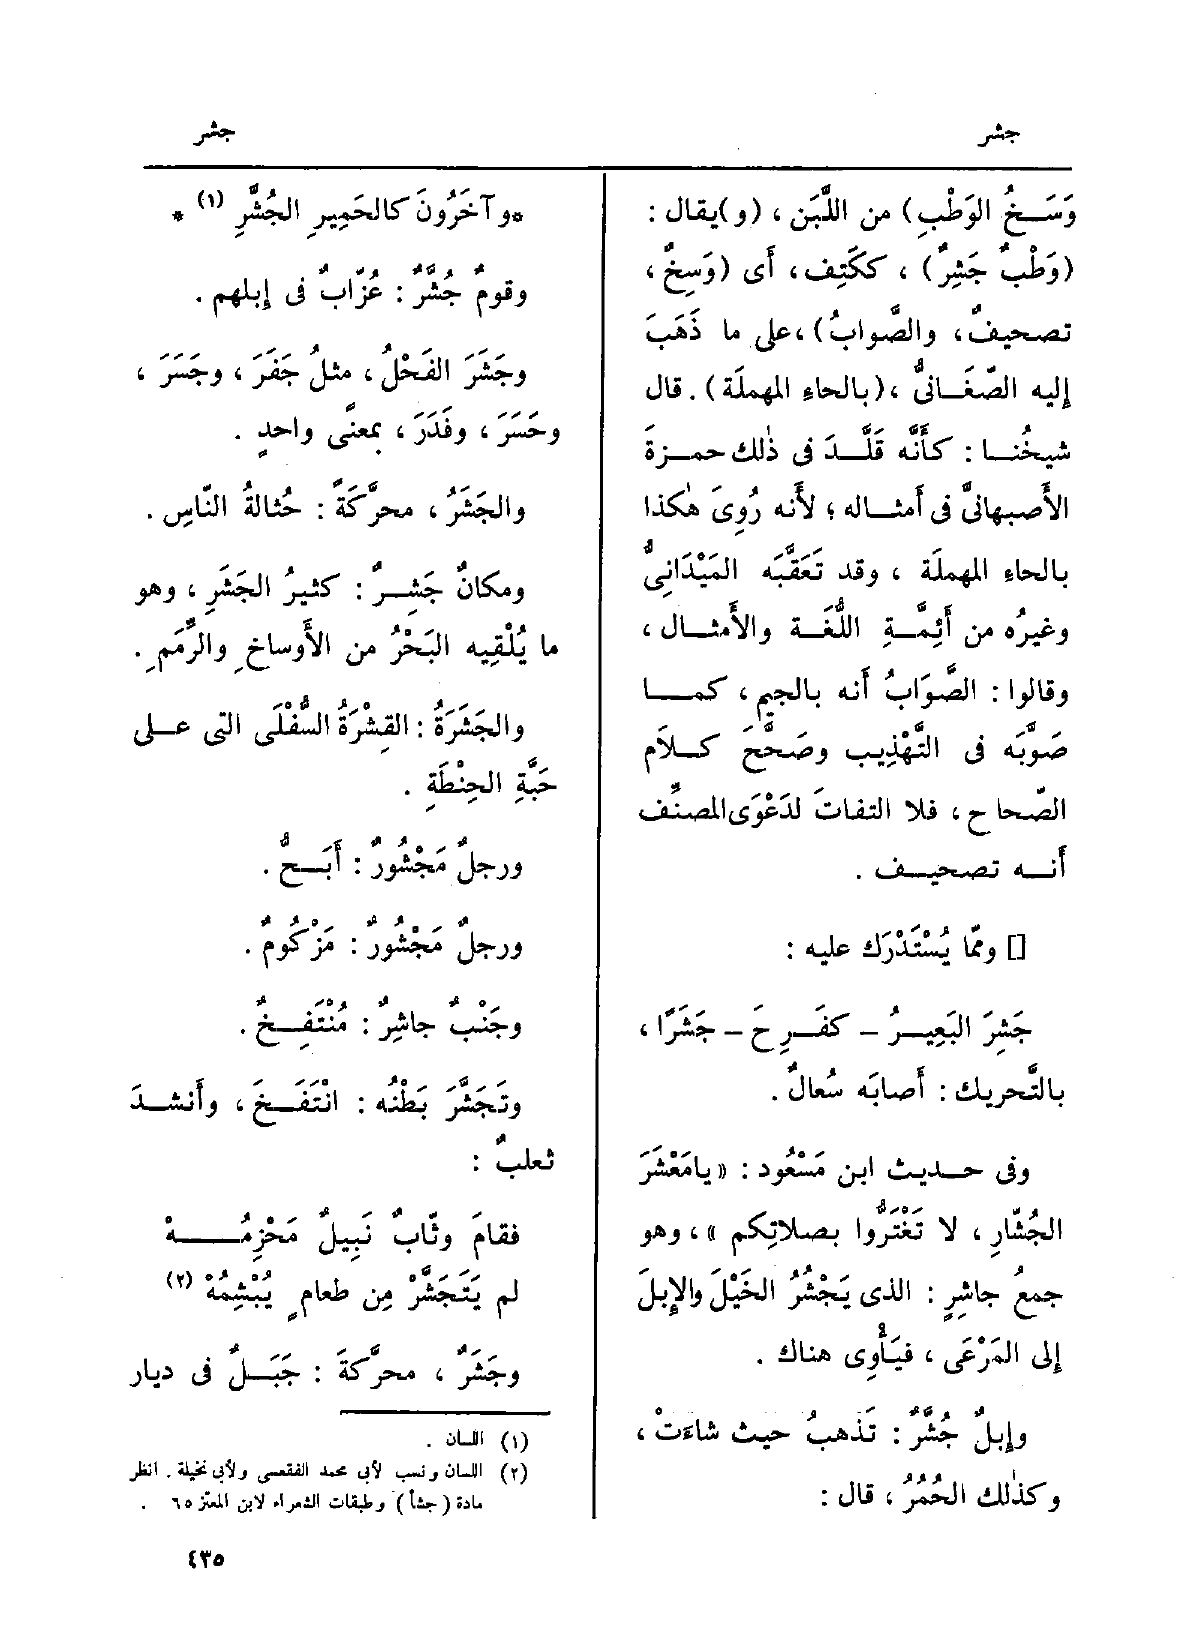 جشر
جشر
وَسَخُ الوَطْبِ) من اللَّبَن ، (و)يقال :
(وَطْبٌ جَشِرٌ) ، ككَتِف، أَى (وَسِخٌ ،
تصحيفٌ، والصَّوابُ)، على ما ذَهَبَ
إليه الصّغَانىُّ ،(بالحاءِ المهملَة). قال
شيخُنا : كأَنَّه قَلَّدَ فى ذٰلك حمزةَ
الأَصبهانىَّ فى أَمثاله ؛ لأَنه رُوِىَ هٰكذا
بالحاءِ المهملَة ، وقد تَعَقَّبَه المَيْدَانِىُّ
وغيرُه من أَئِمَّةِ اللُّغَة والأَمثال ،
وقالوا : الصَّوَابُ أَنه بالجيم ، كما
صَوَّبَه فى التَّهْذِيب وصَحَّحَ كلاَم
الصّحاح ، فلا التفاتَ لدَعْوَى المصنِّف
أَنه تصحيف .
[] وممّا يُسْتَدْرَك عليه :
جَشِرَ البَعِيرُ – كفَرِحَ – جَشَرًا ،
بالتَّحريك : أَصابَه سُعالٌ .
وفى حديث ابن مَسْعُود : «يامَعْشَرَ
الجُشّارِ ، لا تَغْتَرُّوا بصلاتِكم » ، وهو
جمعُ جاشِرٍ : الذى يَجْشُرُ الخَيْلَ والإِبلَ
إلى المَرْعَى ، فيَأْوِى هناك .
وإبلٌ جُشَّرٌ : تَذهبُ حيث شاءَتْ ،
وكذٰلك الحُمُرُ ، قال :
*وآخَرُونَ كالحَمِيرِ الجُشَّرِ (١) *
وقومٌ جُشَّرٌ : عُزّابٌ فى إبلهم .
وجَشَرَ الفَحْلُ ، مثلُ جَفَرَ ، وجَسَرَ ،
وحَسَرَ ، وفَدَرَ ، بمعنًى واحدٍ .
والجَشَرُ ، محرَّكَةً : حُثالةُ النّاسِ .
ومكانٌ جَشِرٌ : كثيرُ الجَشَرِ ، وهو
ما يُلْقِيه البَحْرُ من الأَوساخِ والرِّمَمِ .
والجَشَرَةُ : القِشْرَةُ السُّفْلَى التى على
حَبَّةِ الحِنْطَةِ .
ورجلٌ مَجْشُورٌ : أَبَحُّ .
ورجلٌ مَجْشُورٌ : مَزْكُومٌ .
وجَنْبٌ جاشِرٌ : مُنْتَفِخٌ .
وتَجَشَّرَ بَطْنُه : انْتَفَخَ ، وأَنشد
ثعلبٌ :
فقامَ وثّابٌ نَبِيلٌ مَحْزِمُهْ
لم يَتَجَشَّرْ مِن طعامٍ يُبْشِمُهْ (٢)
وجَشَرٌ ، محرَّكةً : جَبَلٌ فى ديار
(١) اللسان .
(٢) اللسان ونسب لأبى محمد الفقعسى ولأبى نخيلة . انظر
مادة (جشأ) وطبقات الشعراء لابن المعتز ٦٥ .
٤٣٥